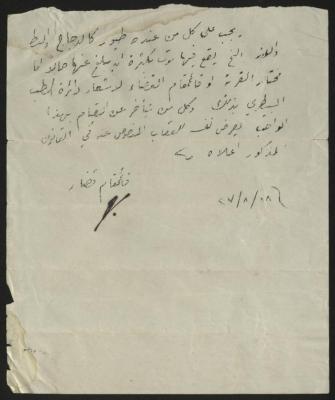 يجب على كل من عنده طيور كالدجاج والبط
والاوز الخ يقع فيها موت بكثرة ان يبلغ عنها حالا اما
مختار القرية او قائمقام القضاء لاشعار دائرة الطب
البيطري بذلك وكل من يتأخر عن القيام بهذا
الواجب يعرض نفسه للعقاب المنصوص عنه في القانون
المذكور اعلاه
قائمقام قضاء